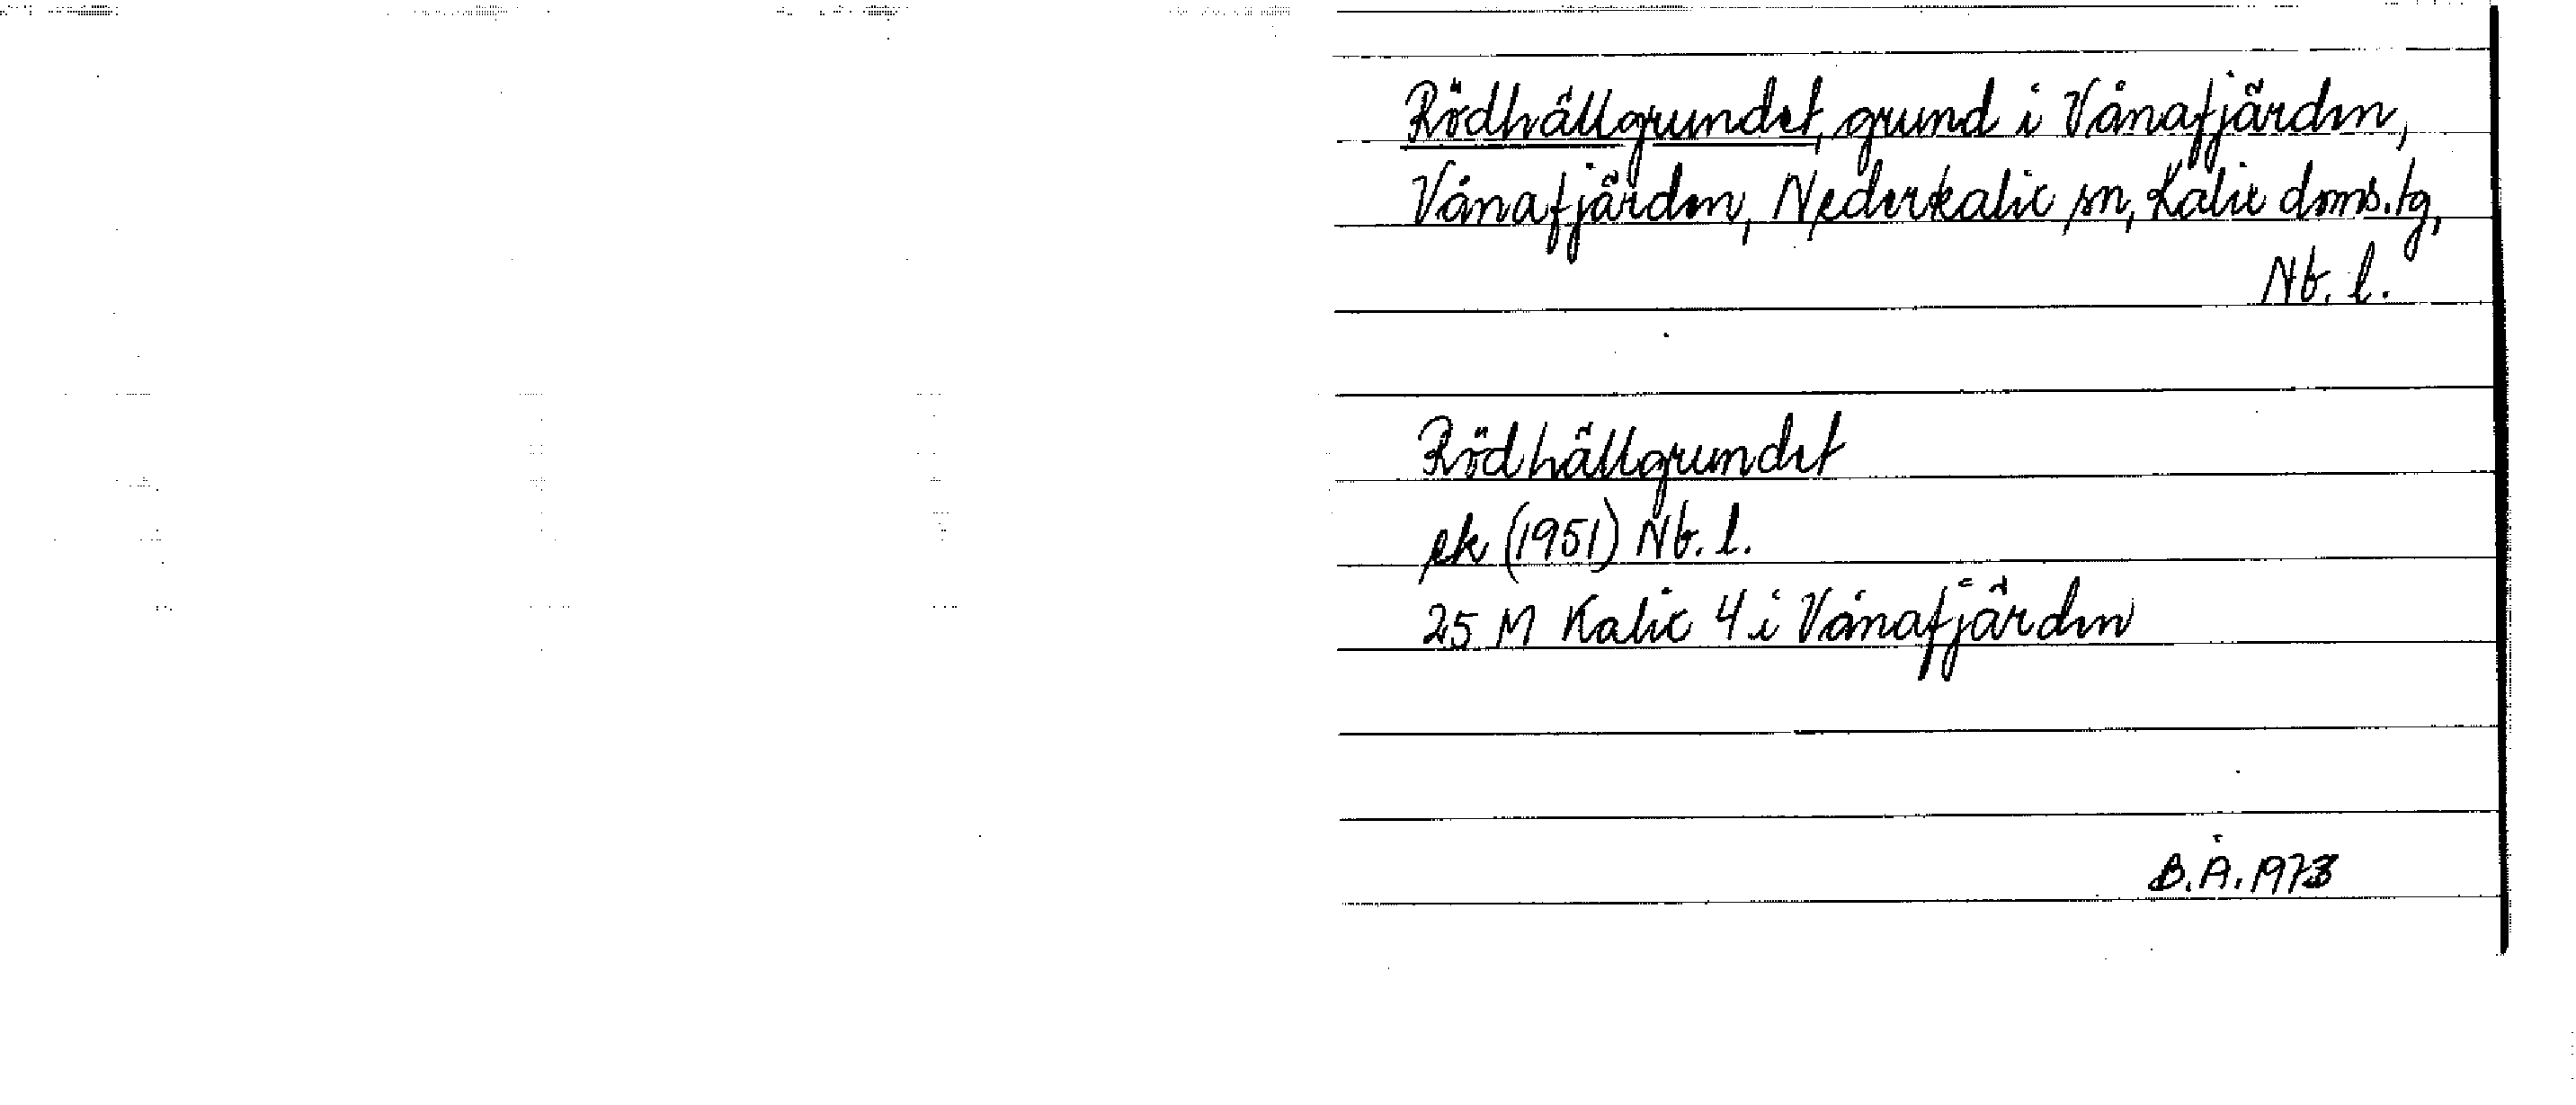 Rödhällgrundet, grund i Vånafjärden,
Vånafjärden, Nederkalix sn, Kalix doms.tg,
Nb. l.
Rödhällgrundet
ek (1951) Nb. l.
25 M Kalix 4 i Vånafjärden
B.Å. 1973